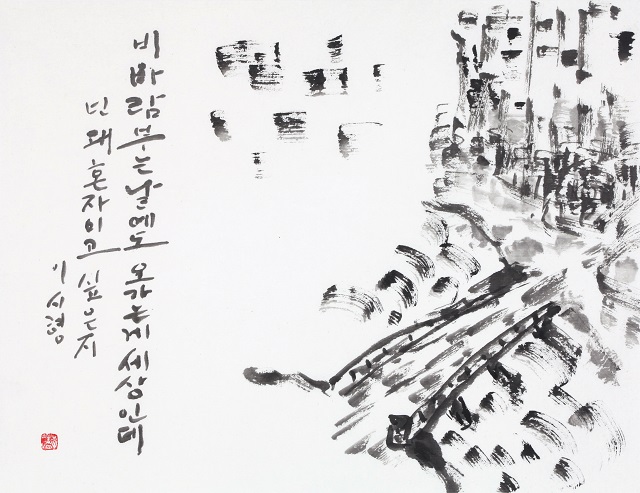 비바람 부는 날에도 오가는게 세상인데
넌 왜 혼자이고 싶은지
이시형